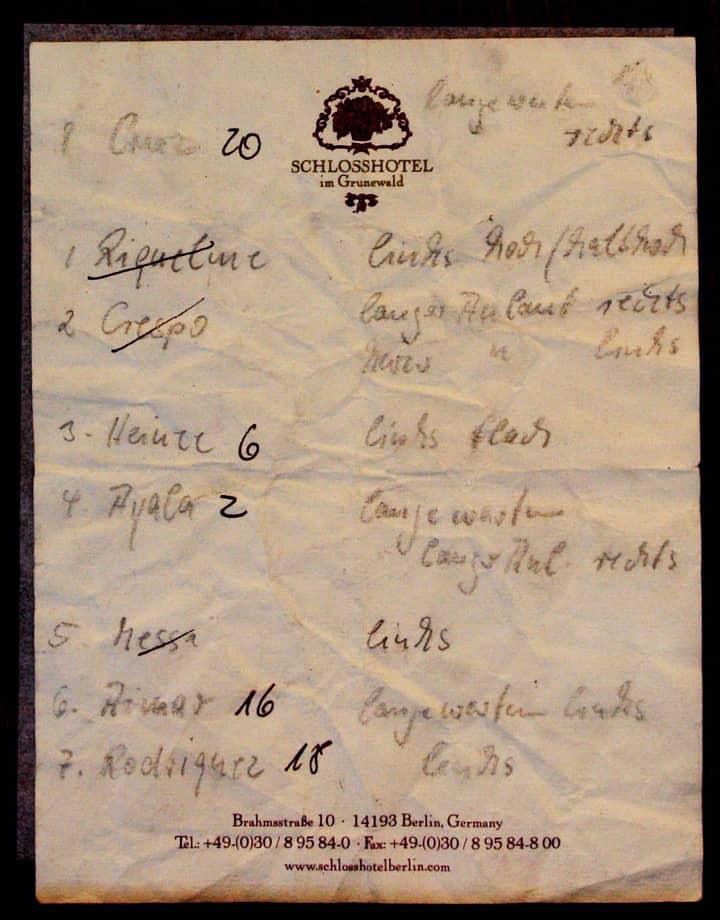 lange warten
1 Cruz 20 rechts
SCHLOSSHOTEL
im Grunewald
1 Riquelme links hoch/halbhoch
2 Crespo langer Anlauf rechts
kurz " links
3. Heinze 6 links flach
4. Ayala 2 lange warten
langer Anl. rechts
5. Messi links
6. Aimar 16 lange warten links
7. Rodriguez 18 links
Brahmsstraße 10 · 14193 Berlin, Germany
Tel.: +49-(0)30 / 8 95 84-0 · Fax: +49-(0)30 / 8 95 84-8 00
www.schlosshotelberlin.com